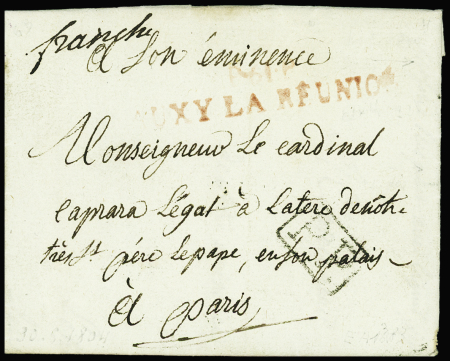 franche
a son éminence
UXY LA RÉUNION
Monseigneur Le cardinal
caprara Légat à Latere de nôtre
très St père Le pape, en son palais
à paris